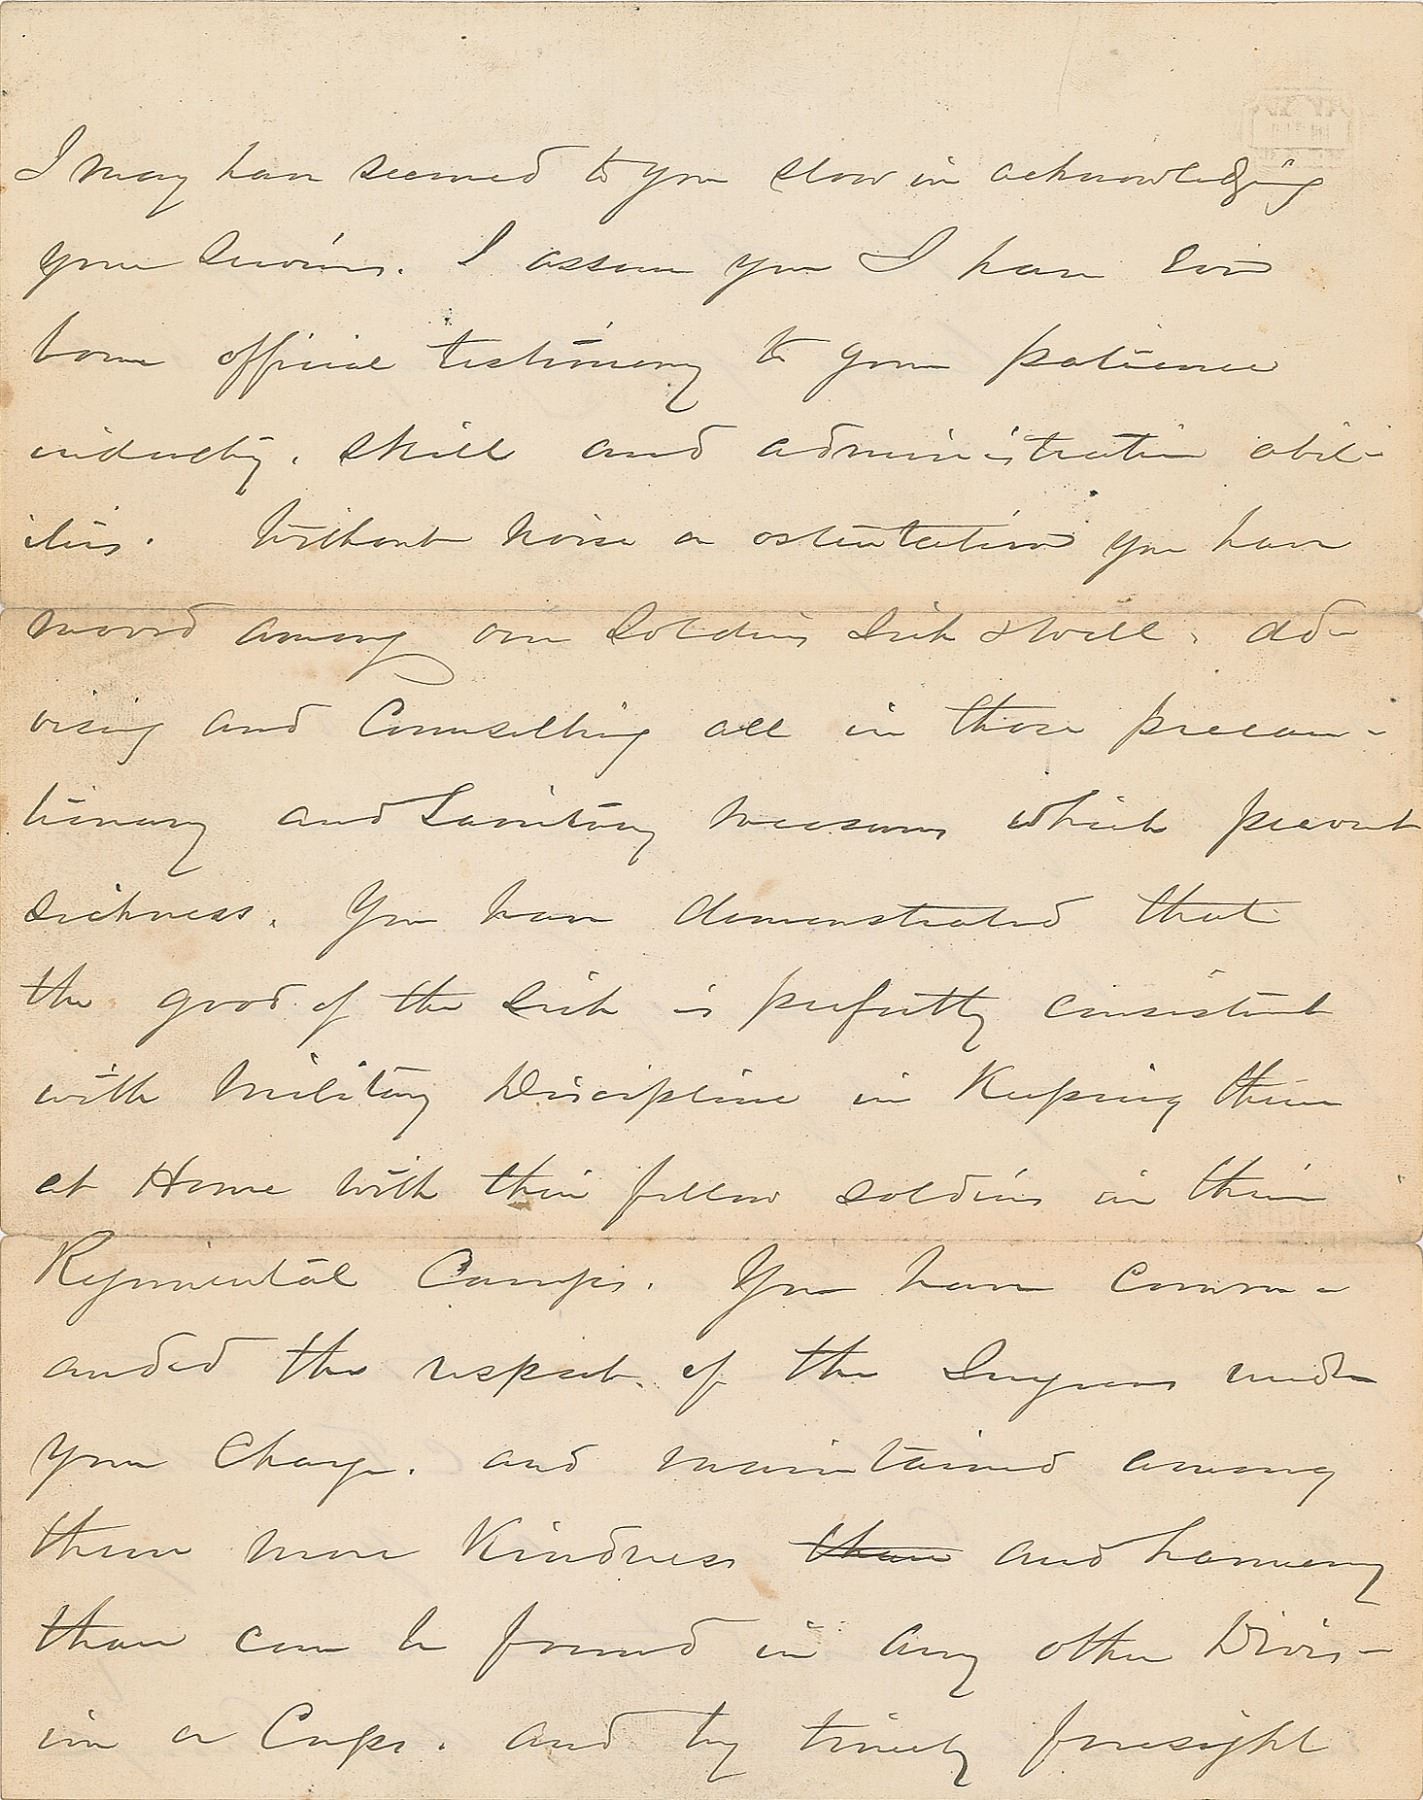 I may have seemed to you slow in acknowledging
your services. I assure you I have ever
borne official testimony to your patience
industry, skill and administrative abil-
ities. Without noise or ostentation you have
moved among our Soldiers Sick & well, ad-
vising and Counselling all in those precau-
tionary and Sanitary measures which prevent
Sickness. You have demonstrated that
the good of the Sick is perfectly consistent
with Military Discipline in Keeping them
at Home with their fellow soldiers in their
Regimental Camps. You have comm-
anded the respect of the Surgeons under
your Charge, and maintained among
them more Kindness than and harmony
than can be found in any other Divis-
ion or Corps, and by timely foresight